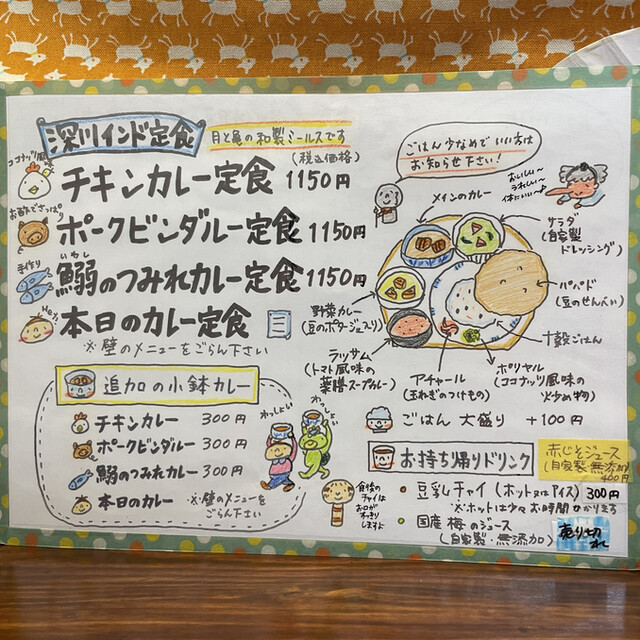 深川インド定食
月と亀の和製ミールスです
(税込価格)
ココナッツ風味
チキンカレー定食 1150円
お酢でさっぱり
ポークビンダルー定食 1150円
手作り
いわし
鰯のつみれカレー定食 1150円
Hey,
本日のカレー定食
※壁のメニューをごらん下さい
ごはん少なめでいい方は
お知らせ下さい!
おいしい〜
うれしい〜
体にいい〜♪
メインのカレー
サラダ
(自家製
ドレッシング)
パパド
(豆のせんべい)
十穀ごはん
ポリヤル
(ココナッツ風味の
炒め物)
アチャール
(玉ねぎのつけもの)
ラッサム
(トマト風味の
薬膳スープカレー)
野菜カレー
(豆のポタージュ入り)
ごはん 大盛り +100円
追加の小鉢カレー
チキンカレー 300円
ポークビンダルー 300円
鰯のつみれカレー 300円
本日のカレー ※壁のメニューを
ごらん下さい
わっしょい
わっしょい
食後の
チャイは
お口が
すっきり
しますよ
お持ち帰りドリンク
赤じそジュース
(自家製 無添加)
400円
豆乳チャイ(ホット又はアイス) 300円
※ホットは少々お時間かかります
国産梅のジュース
(自家製・無添加)
売り切れ